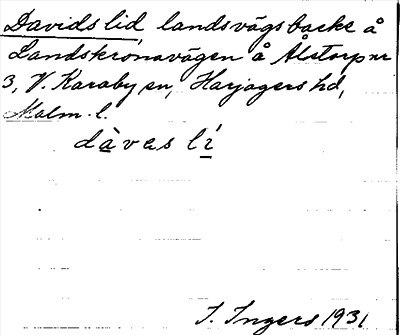 Davids lid, landsvägsbacke å
Landskronavägen å Alstorp nr
3, V. Karaby sn, Harjagers hd,
Malm. l.
dàvas lí
I. Ingers 1931